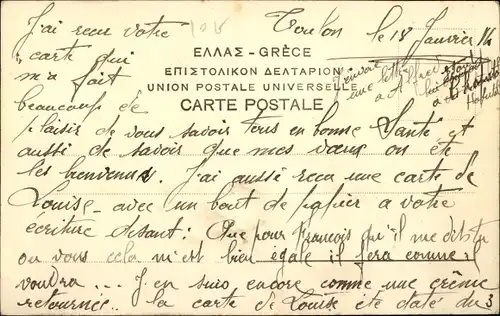 J'ai reçu votre
Toulon le 18 Janvier 14
carte qui
m'a fait
beaucoup de
ΕΛΛΑΣ - GRÈCE
ΕΠΙΣΤΟΛΙΚΟΝ ΔΕΛΤΑΡΙΟΝ
UNION POSTALE UNIVERSELLE
CARTE POSTALE
une
plaisir de vous savoir tous en bonne Santé et
aussi de savoir que mes vœux on été
les bienvenus. J'ai aussi reçu une carte de
Louise - avec un bout de papier a votre
écriture disant: Que pour François qu'il me dit tu
ou vous cela m'est bien égale il fera comme il
voudra... J'en suis encore comme une crême
retournée.. la carte de Louise été daté du 3